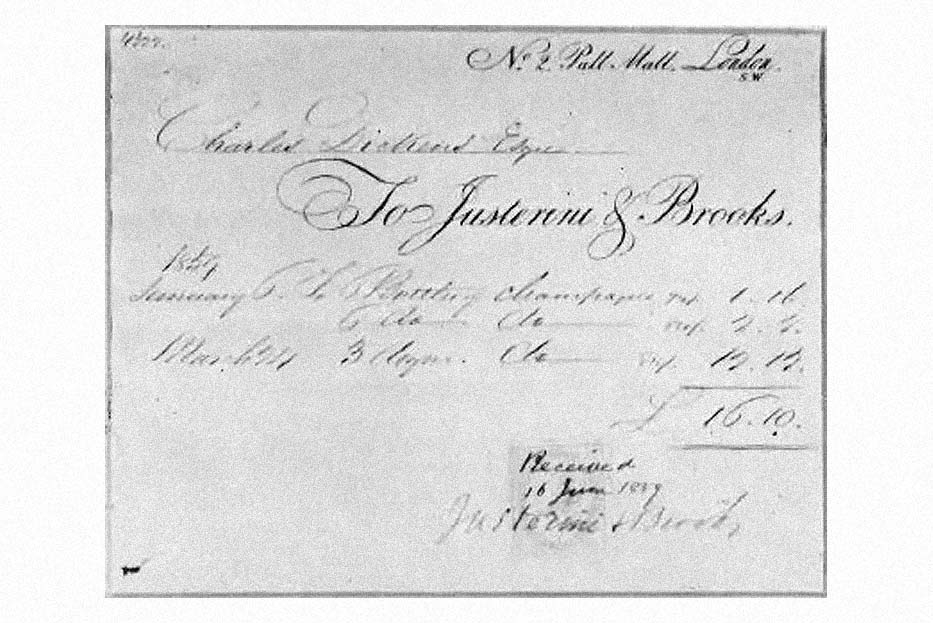 No. 2 Pall Mall. London.
S W
Charles Dickens Esqre
To Justerini & Brooks.
1859
January 6. To 6 Bottles Champagne 1. 16
6 do do 2. 2.
March 24 3 dozn. do 12. 12.
£ 16. 10.
Received
16 June 1859
Justerini & Brooks